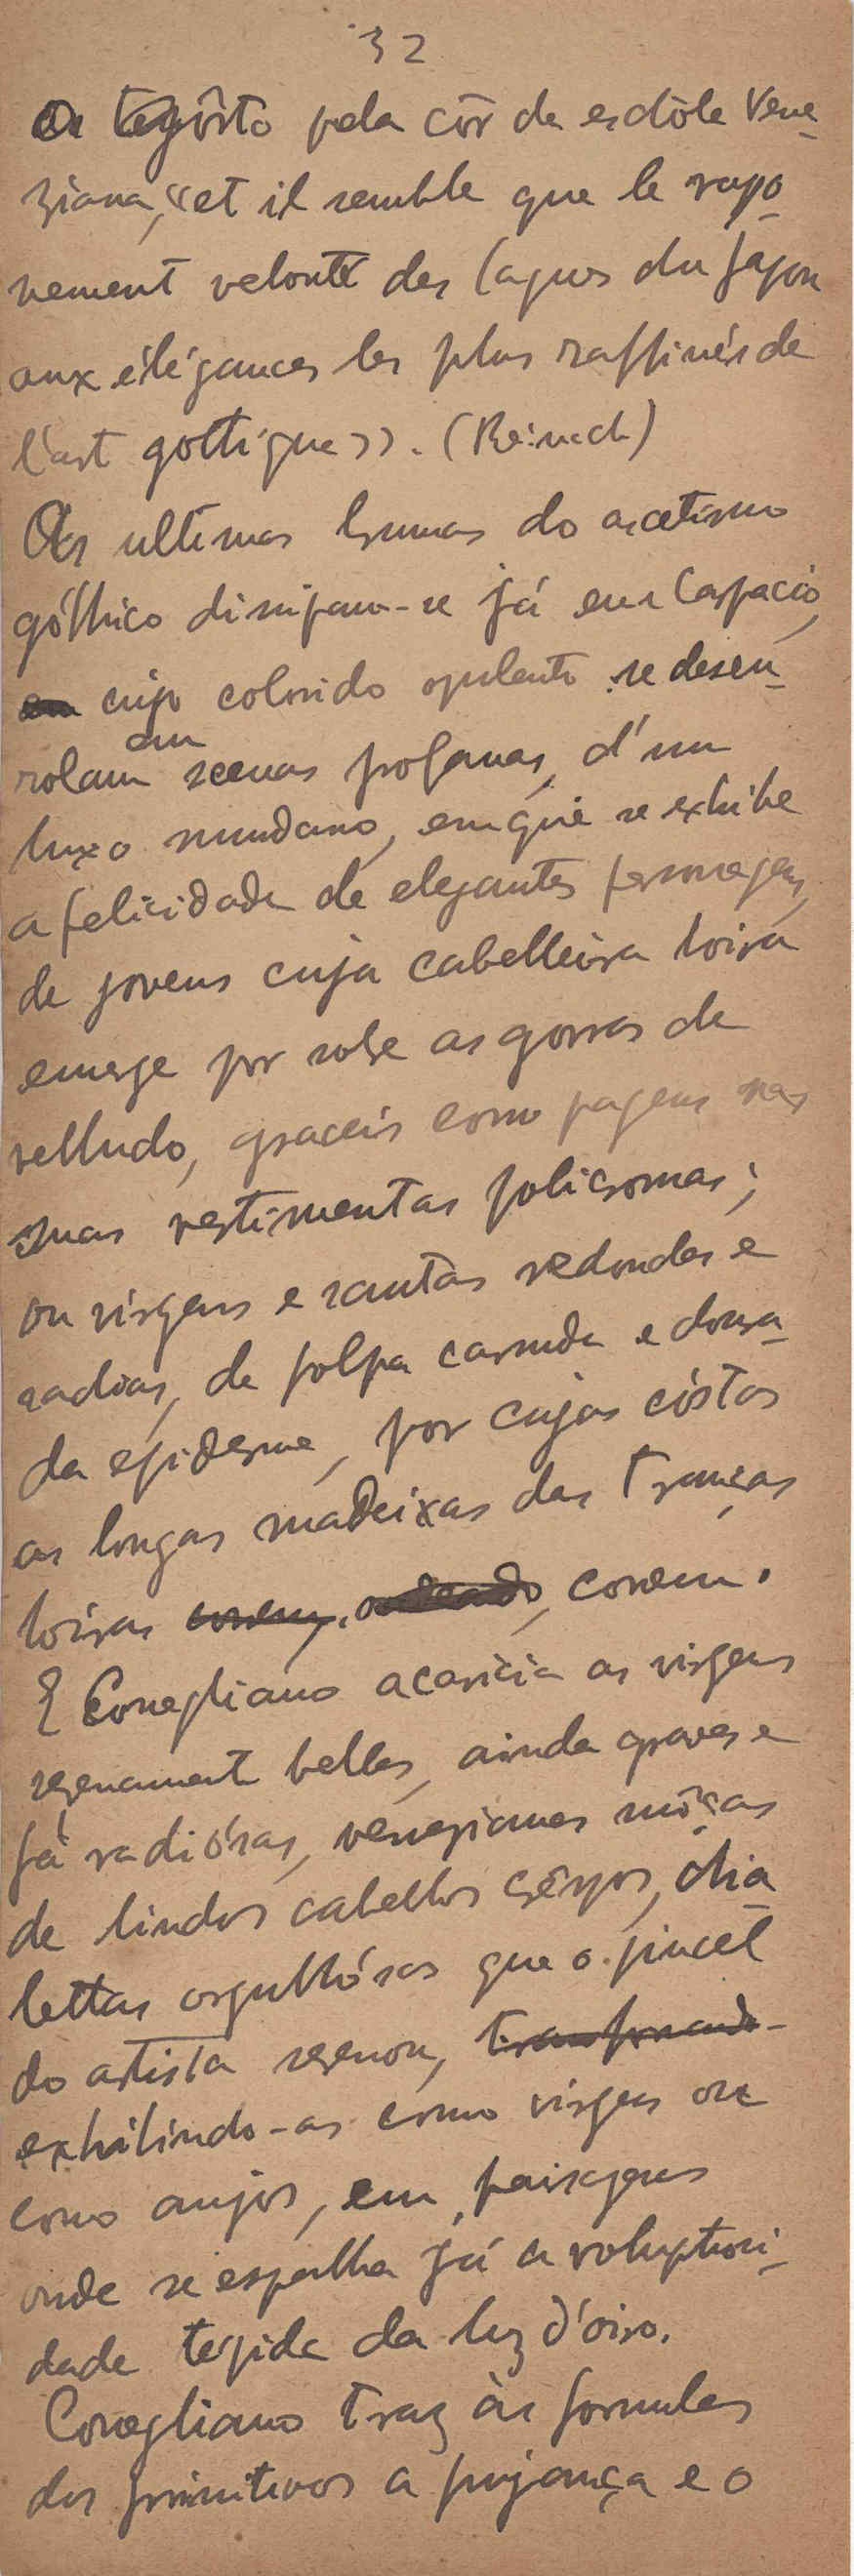 32
o gôsto pela côr da escóla Vene-
ziana, "et il semble que le rayo-
nement velouté des lagunes du façon
aux élégances les plus raffinés de
l'art gothique». (Reinach)
As ultimas brumas do ascetismo
góthico dissipam-se já em Carpacio,
em cujo colorido opulento se desen-
rolam em scenas profanas, d'um
luxo mundano, em que se exhibe
a felicidade de elegantes personagens,
de jovens cuja cabelleira loira
emerge por sobre as gorras de
velludo, graceis como pagens nas
suas vestimentas policromas;
ou virgens e santas redondas e
sadias, de polpa carnuda e doura-
da epiderme, por cujas cóstas
as longas madeixas das tranças
loiras correm, ondeando, correm.
E Conegliano acaricia as virgens
serenamente bellas, ainda graves e
já radiósas, venezianas môças
de lindos cabellos crêspos, dia-
lettas orgulhósas que o pincel
do artista serenou, transformando-
exhibindo-as como virgens ou
como anjos, em paisagens
onde se espalha já a voluptuosi-
dade tepida da luz d'oiro.
Conegliano traz às formulas
dos primitivos a pujança e o